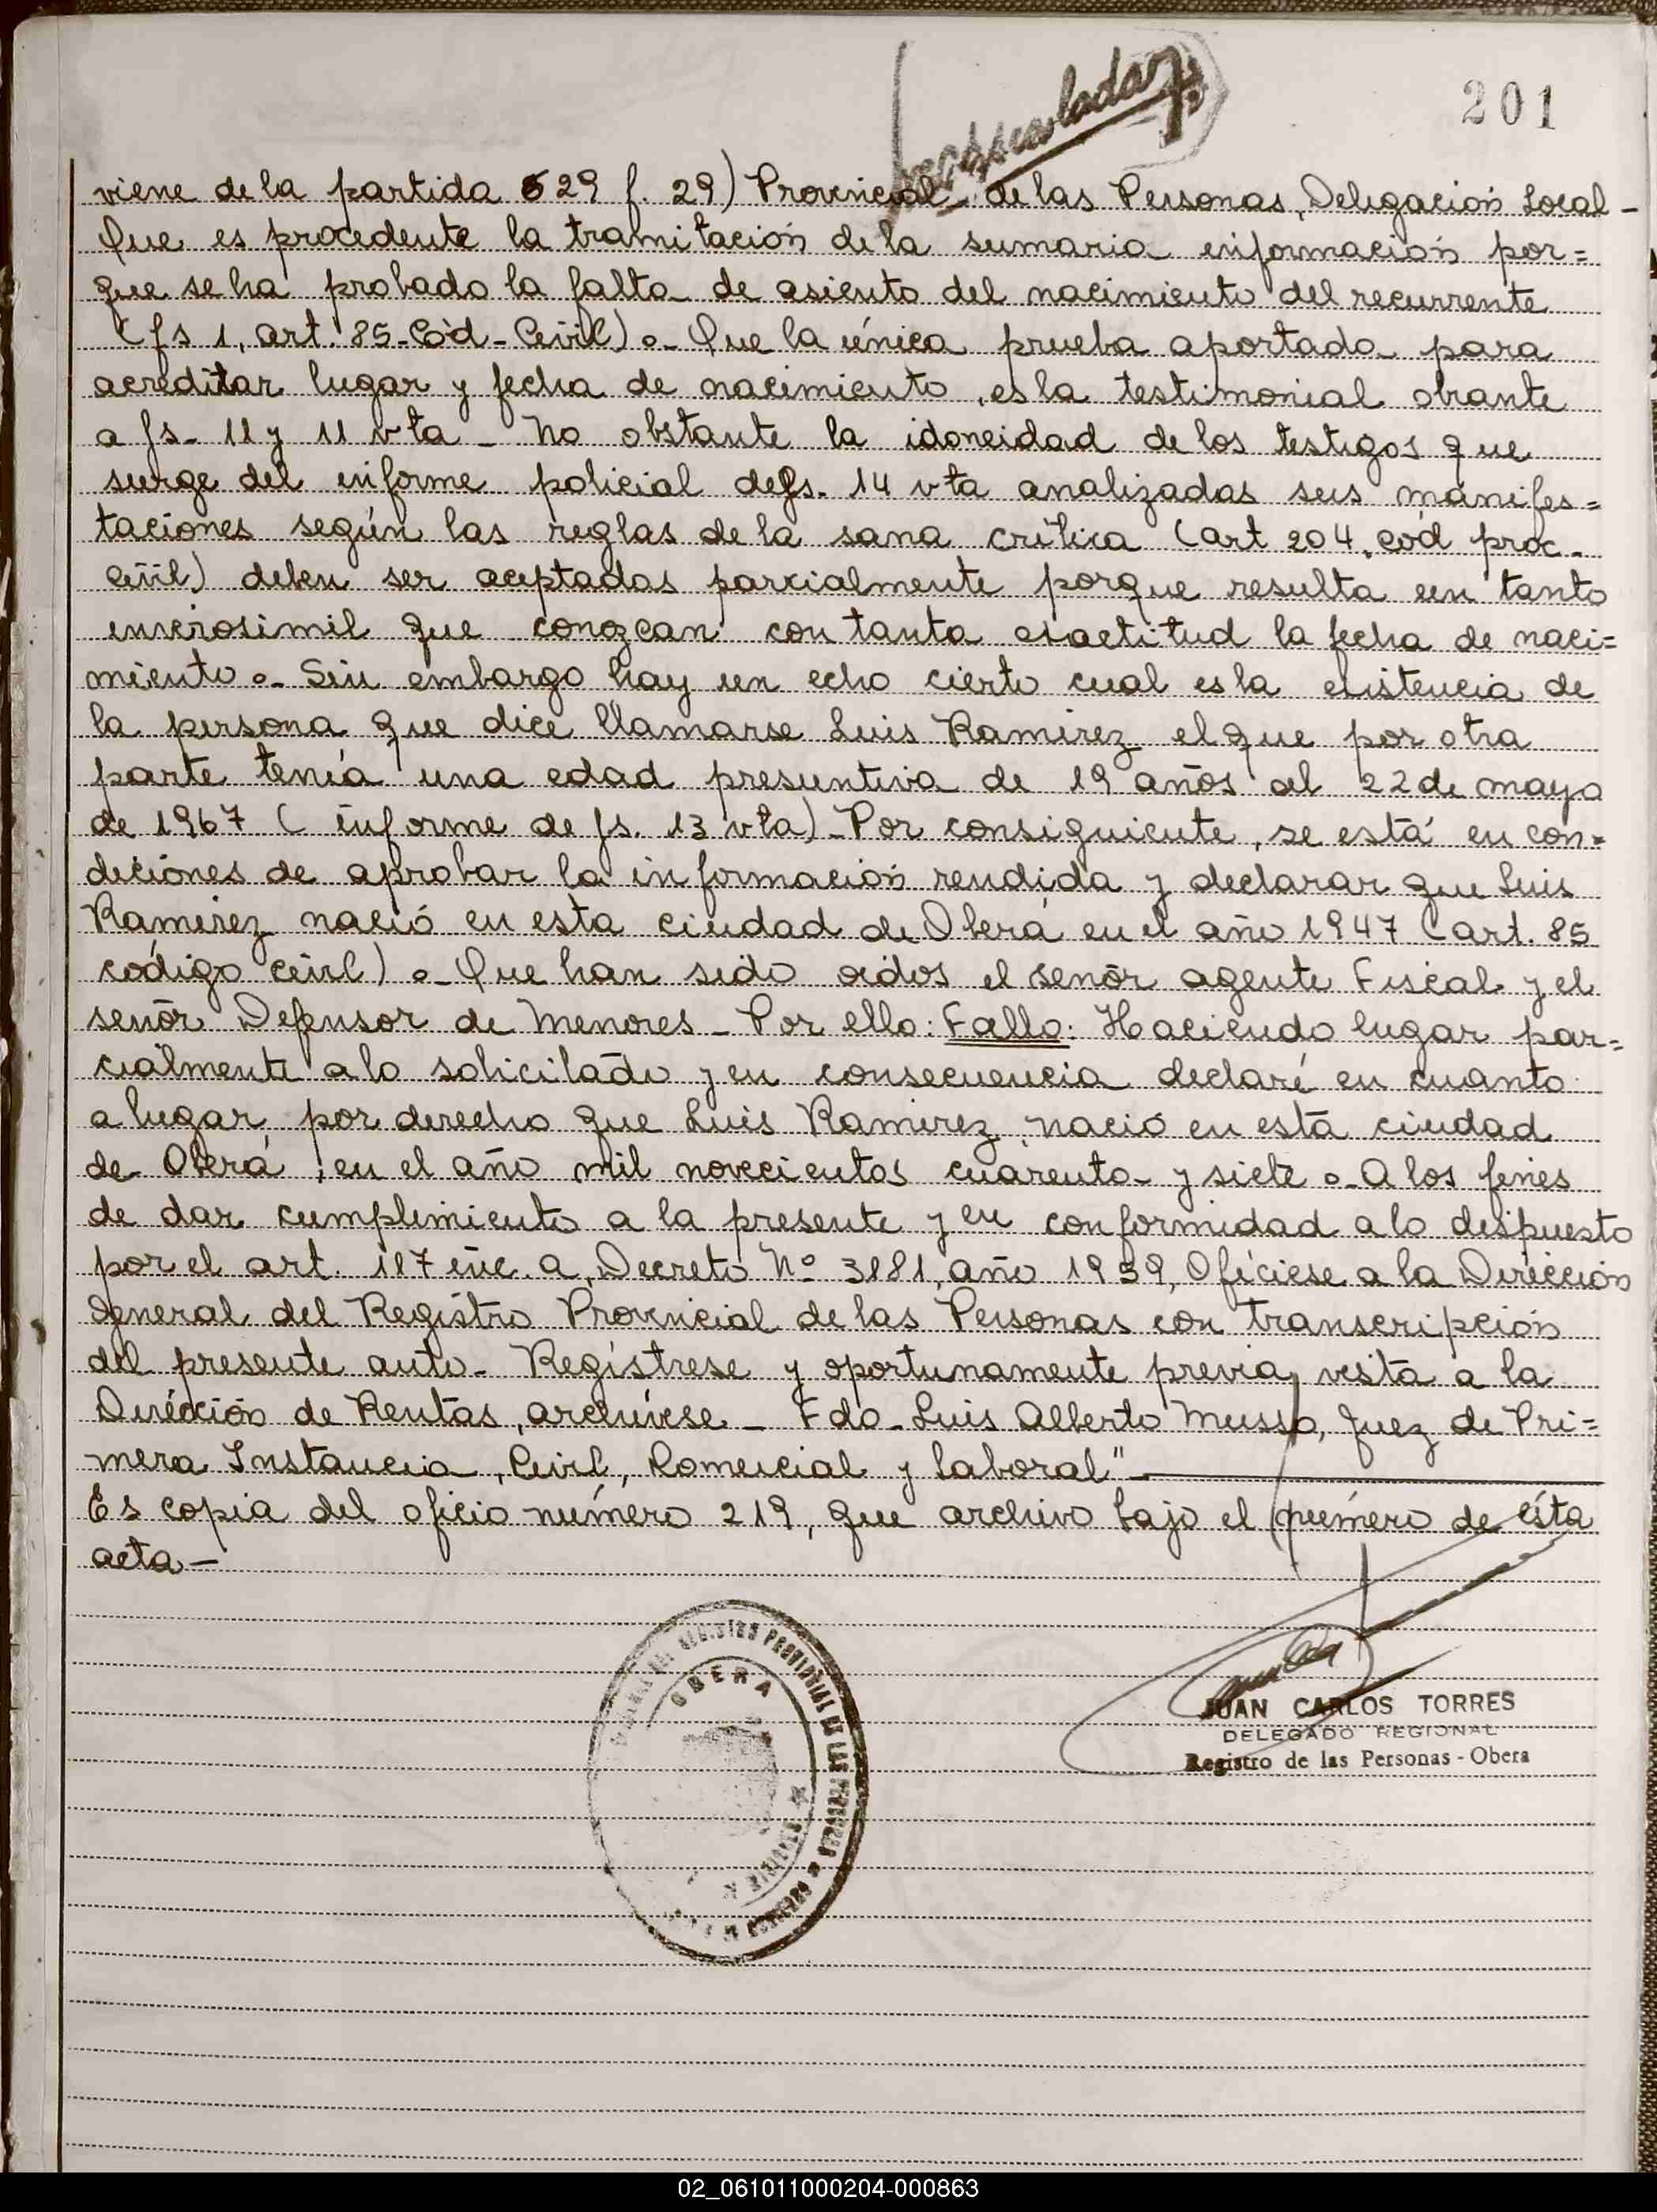 201
viene de la partida 529 f. 29) Provincial de las Personas, Delegación Local -
Que es procedente la tramitación de la sumaria información por=
que se ha probado la falta de asiento del nacimiento del recurrente
(fs 1, art. 85-Cód-Civil)o- Que la única prueba aportada para
acreditar lugar y fecha de nacimiento, es la testimonial obrante
a fs- 11 y 11 vta - No obstante la idoneidad de los testigos que
surge del informe policial de fs. 14 vta analizadas sus manifes=
taciones según las reglas de la sana crítica (art 204, cód proc-
civil) deben ser aceptadas parcialmente porque resulta un tanto
inverosimil que conozcan con tanta exactitud la fecha de naci=
miento o- Sin embargo hay un echo cierto cual es la existencia de
la persona que dice llamarse Luis Ramirez el que por otra
parte tenía una edad presuntiva de 19 años al 22 de mayo
de 1967 (informe de fs. 13 vta)- Por consiguiente, se está en con=
diciones de aprobar la información rendida y declarar que Luis
Ramirez nació en esta ciudad de Oberá en el año 1947 (art. 85
código civil) o- Que han sido oidos el señor agente Fiscal y el
señor Defensor de Menores - Por ello: Fallo: Haciendo lugar par=
cialmente a lo solicitado y en consecuencia declaré en cuanto
a lugar por derecho que Luis Ramirez, nació en esta ciudad
de Oberá, en el año mil novecientos cuarenta y siete o- A los fines
de dar cumplimiento a la presente y en conformidad a lo dispuesto
por el art. 117 inc. a, Decreto Nº 3181, año 1959, Ofíciese a la Dirección
General del Registro Provincial de las Personas con transcripción
del presente auto- Regístrese y oportunamente previa vista a la
Dirección de Rentas, archívese - Fdo- Luis Alberto Musso, Juez de Pri=
mera Instancia, Civil, Comercial y laboral"-
Es copia del oficio número 219, que archivo bajo el número de ésta
acta-
OBERA
JUAN CARLOS TORRES
DELEGADO REGIONAL
Registro de las Personas - Obera
02_061011000204-000863